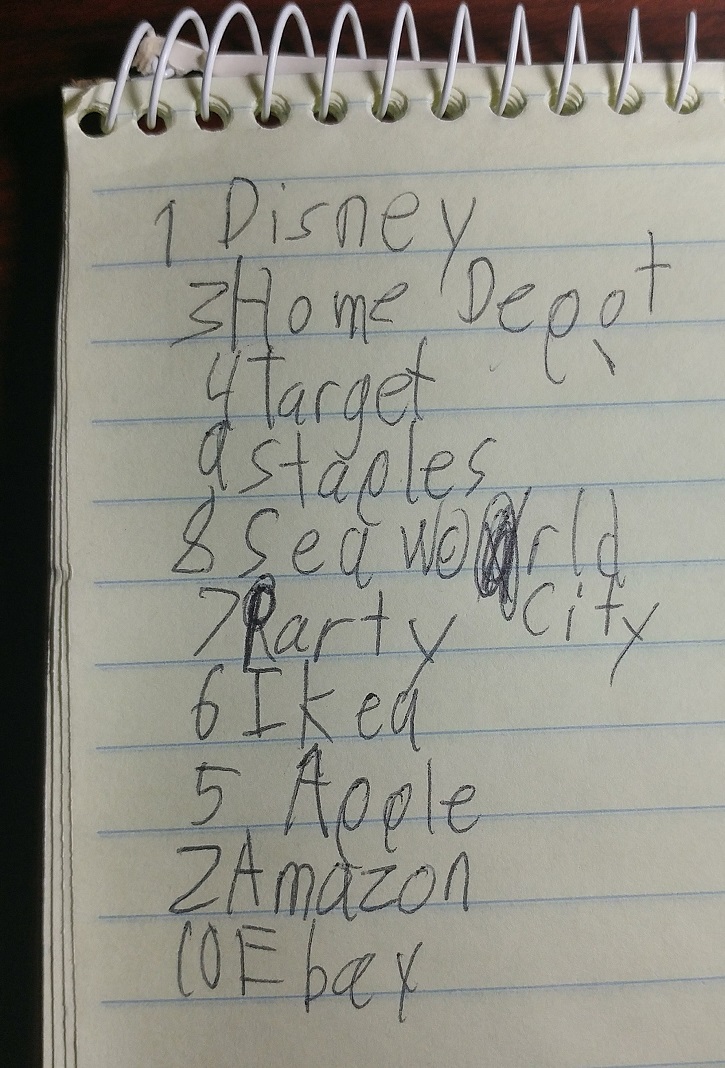 1 Disney
3 Home Depot
4 Target
9 Staples
8 Sea World
7 Party City
6 Ikea
5 Apple
2 Amazon
10 Ebay